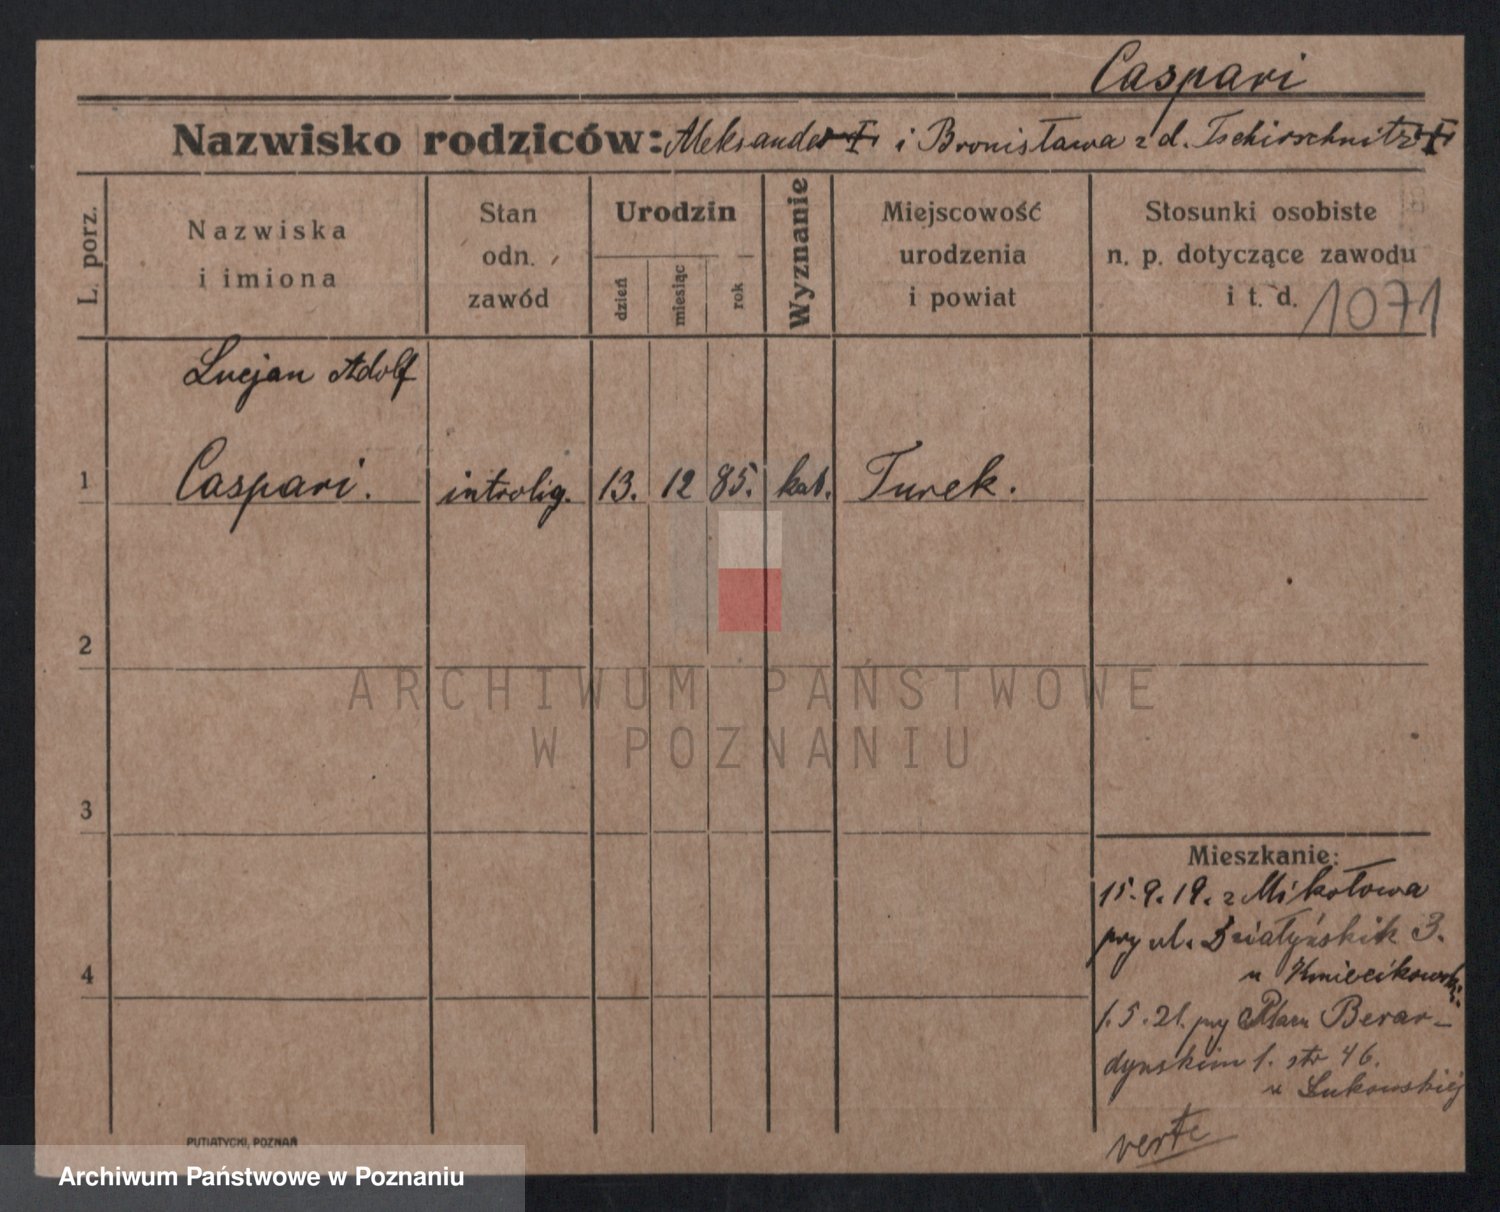 Caspari
Nazwisko rodziców: Aleksander i Bronisława z d. Tschirschnitz
L. porz.
Nazwiska
i imiona
Stan
odn.
zawód
Urodzin
dzień
miesiąc
rok
Wyznanie
Miejscowość
urodzenia
i powiat
Stosunki osobiste
n. p. dotyczące zawodu
i t. d.
1071
Lucjan Adolf
1 Caspari. introlig. 13. 12 85. kat. Turek.
2
3
4
Mieszkanie:
15.9.19. z Mikołowa
przy ul. Działyńskik 3.
u Kmiecikowski
1.5.21. przy Placu Berar-
dynskim 1. str 46.
u Lukowskiej
verte
PUTIATYCKI, POZNAŃ
ARCHIWUM PAŃSTWOWE
W POZNANIU
Archiwum Państwowe w Poznaniu